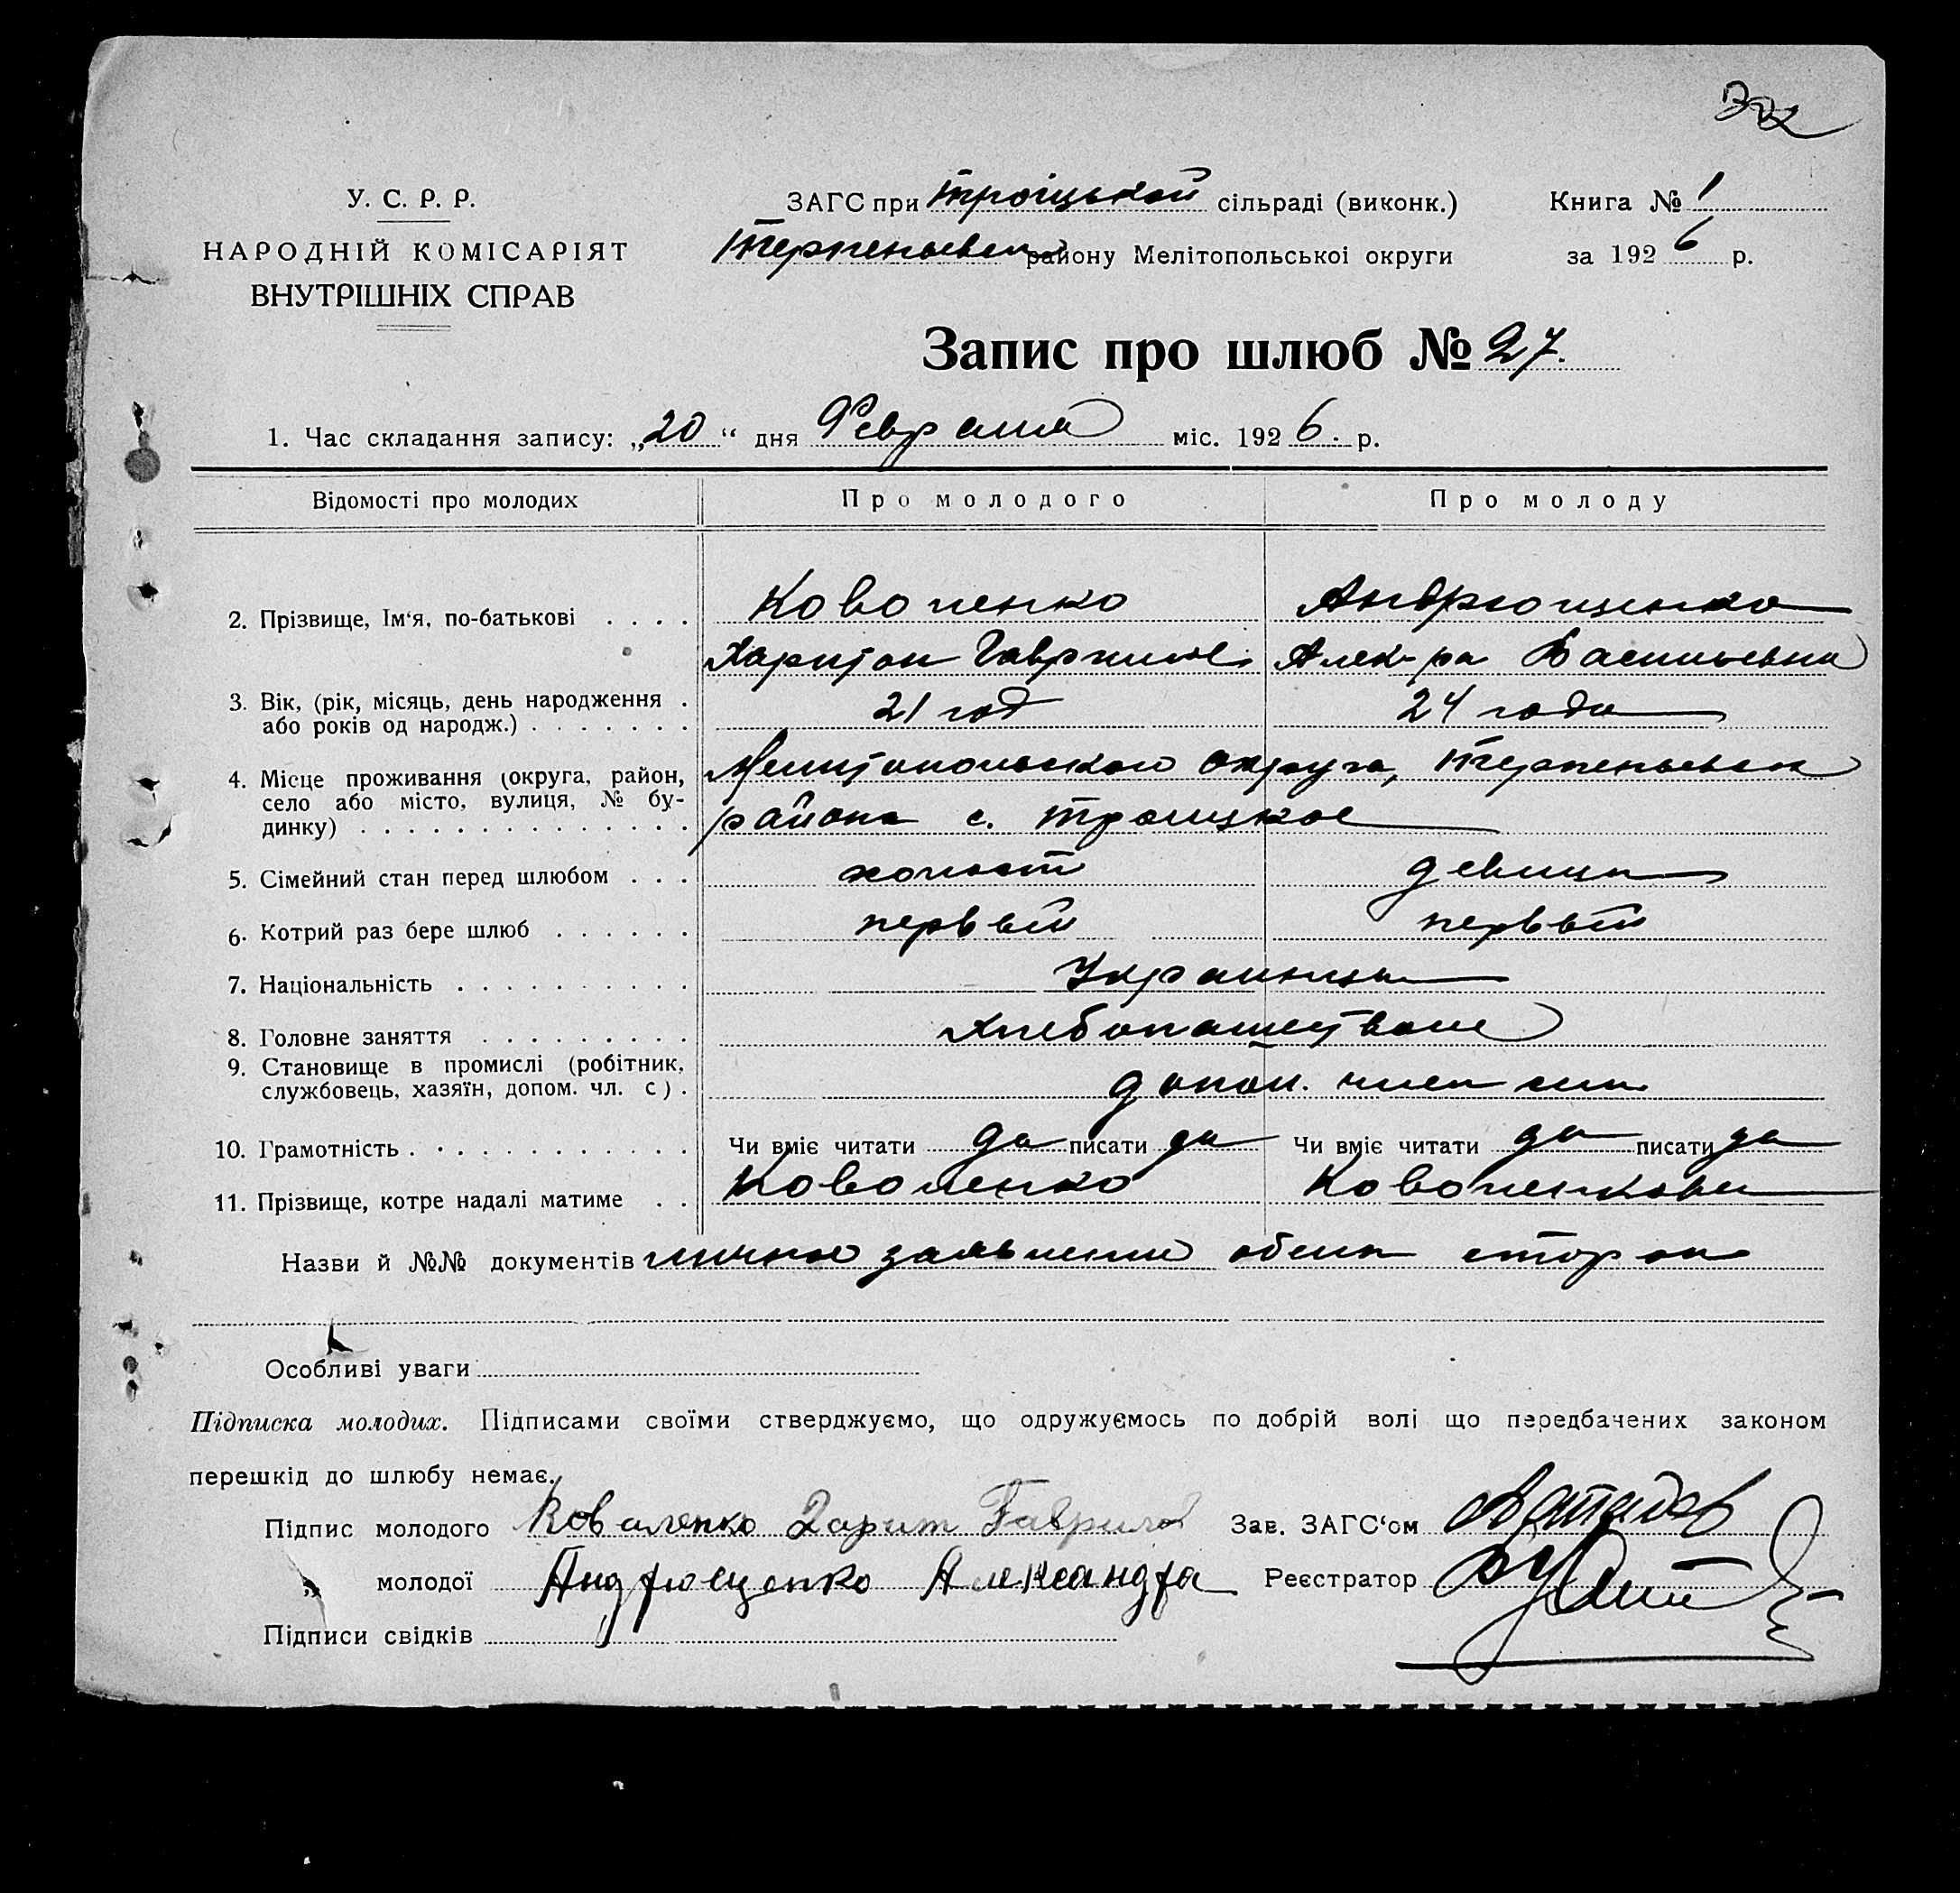 322
У. С. Р. Р.
НАРОДНІЙ КОМІСАРІЯТ
ВНУТРІШНІХ СПРАВ
ЗАГС при Троіцькой сільраді (виконк.)
Терпеньевск району Мелітопольськоі округи
Книга № 1
за 1926 р.
Запис про шлюб № 27.
1. Час складання запису: „20“ дня Февраля міс. 1926. р.
Відомості про молодих Про молодого Про молоду
2. Прізвище, Ім‘я, по-батькові . . . . Коволенко Андрющенко
Харитон Гаврилов. Алек-ра Васильевна
3. Вік, (рік, місяць, день народження . 21 год 24 года
або років од народж.) . . . . . . .
4. Місце проживання (округа, район, Мелитопольского округа, Терпеньевск
село або місто, вулиця, № бу-
динку) . . . . . . . . . . . . . района с. Троицкое
5. Сімейний стан перед шлюбом . . . холост девица
6. Котрий раз бере шлюб . . . . . . первый первый
7. Національність . . . . . . . . . . Украинцы
8. Головне заняття . . . . . . . . . Хлебопашество
9. Становище в промислі (робітник,
службовець, хазяїн, допом. чл. с) . допом. член сем.
10. Грамотність . . . . . . . . . . . Чи вміє читати да писати да Чи вміє читати да писати да
11. Прізвище, котре надалі матиме . . Коволенко Коволенкова
Назви й №№ документів личное заявление обеих сторон
Особливі уваги
Підписка молодих. Підписами своїми стверджуємо, що одружуємось по добрій волі що передбачених законом
перешкід до шлюбу немає.
Підпис молодого Коваленко Харит Гаврилов Зав. ЗАГС‘ом
„ молодої Андрющенко Александра Реєстратор
Підписи свідків